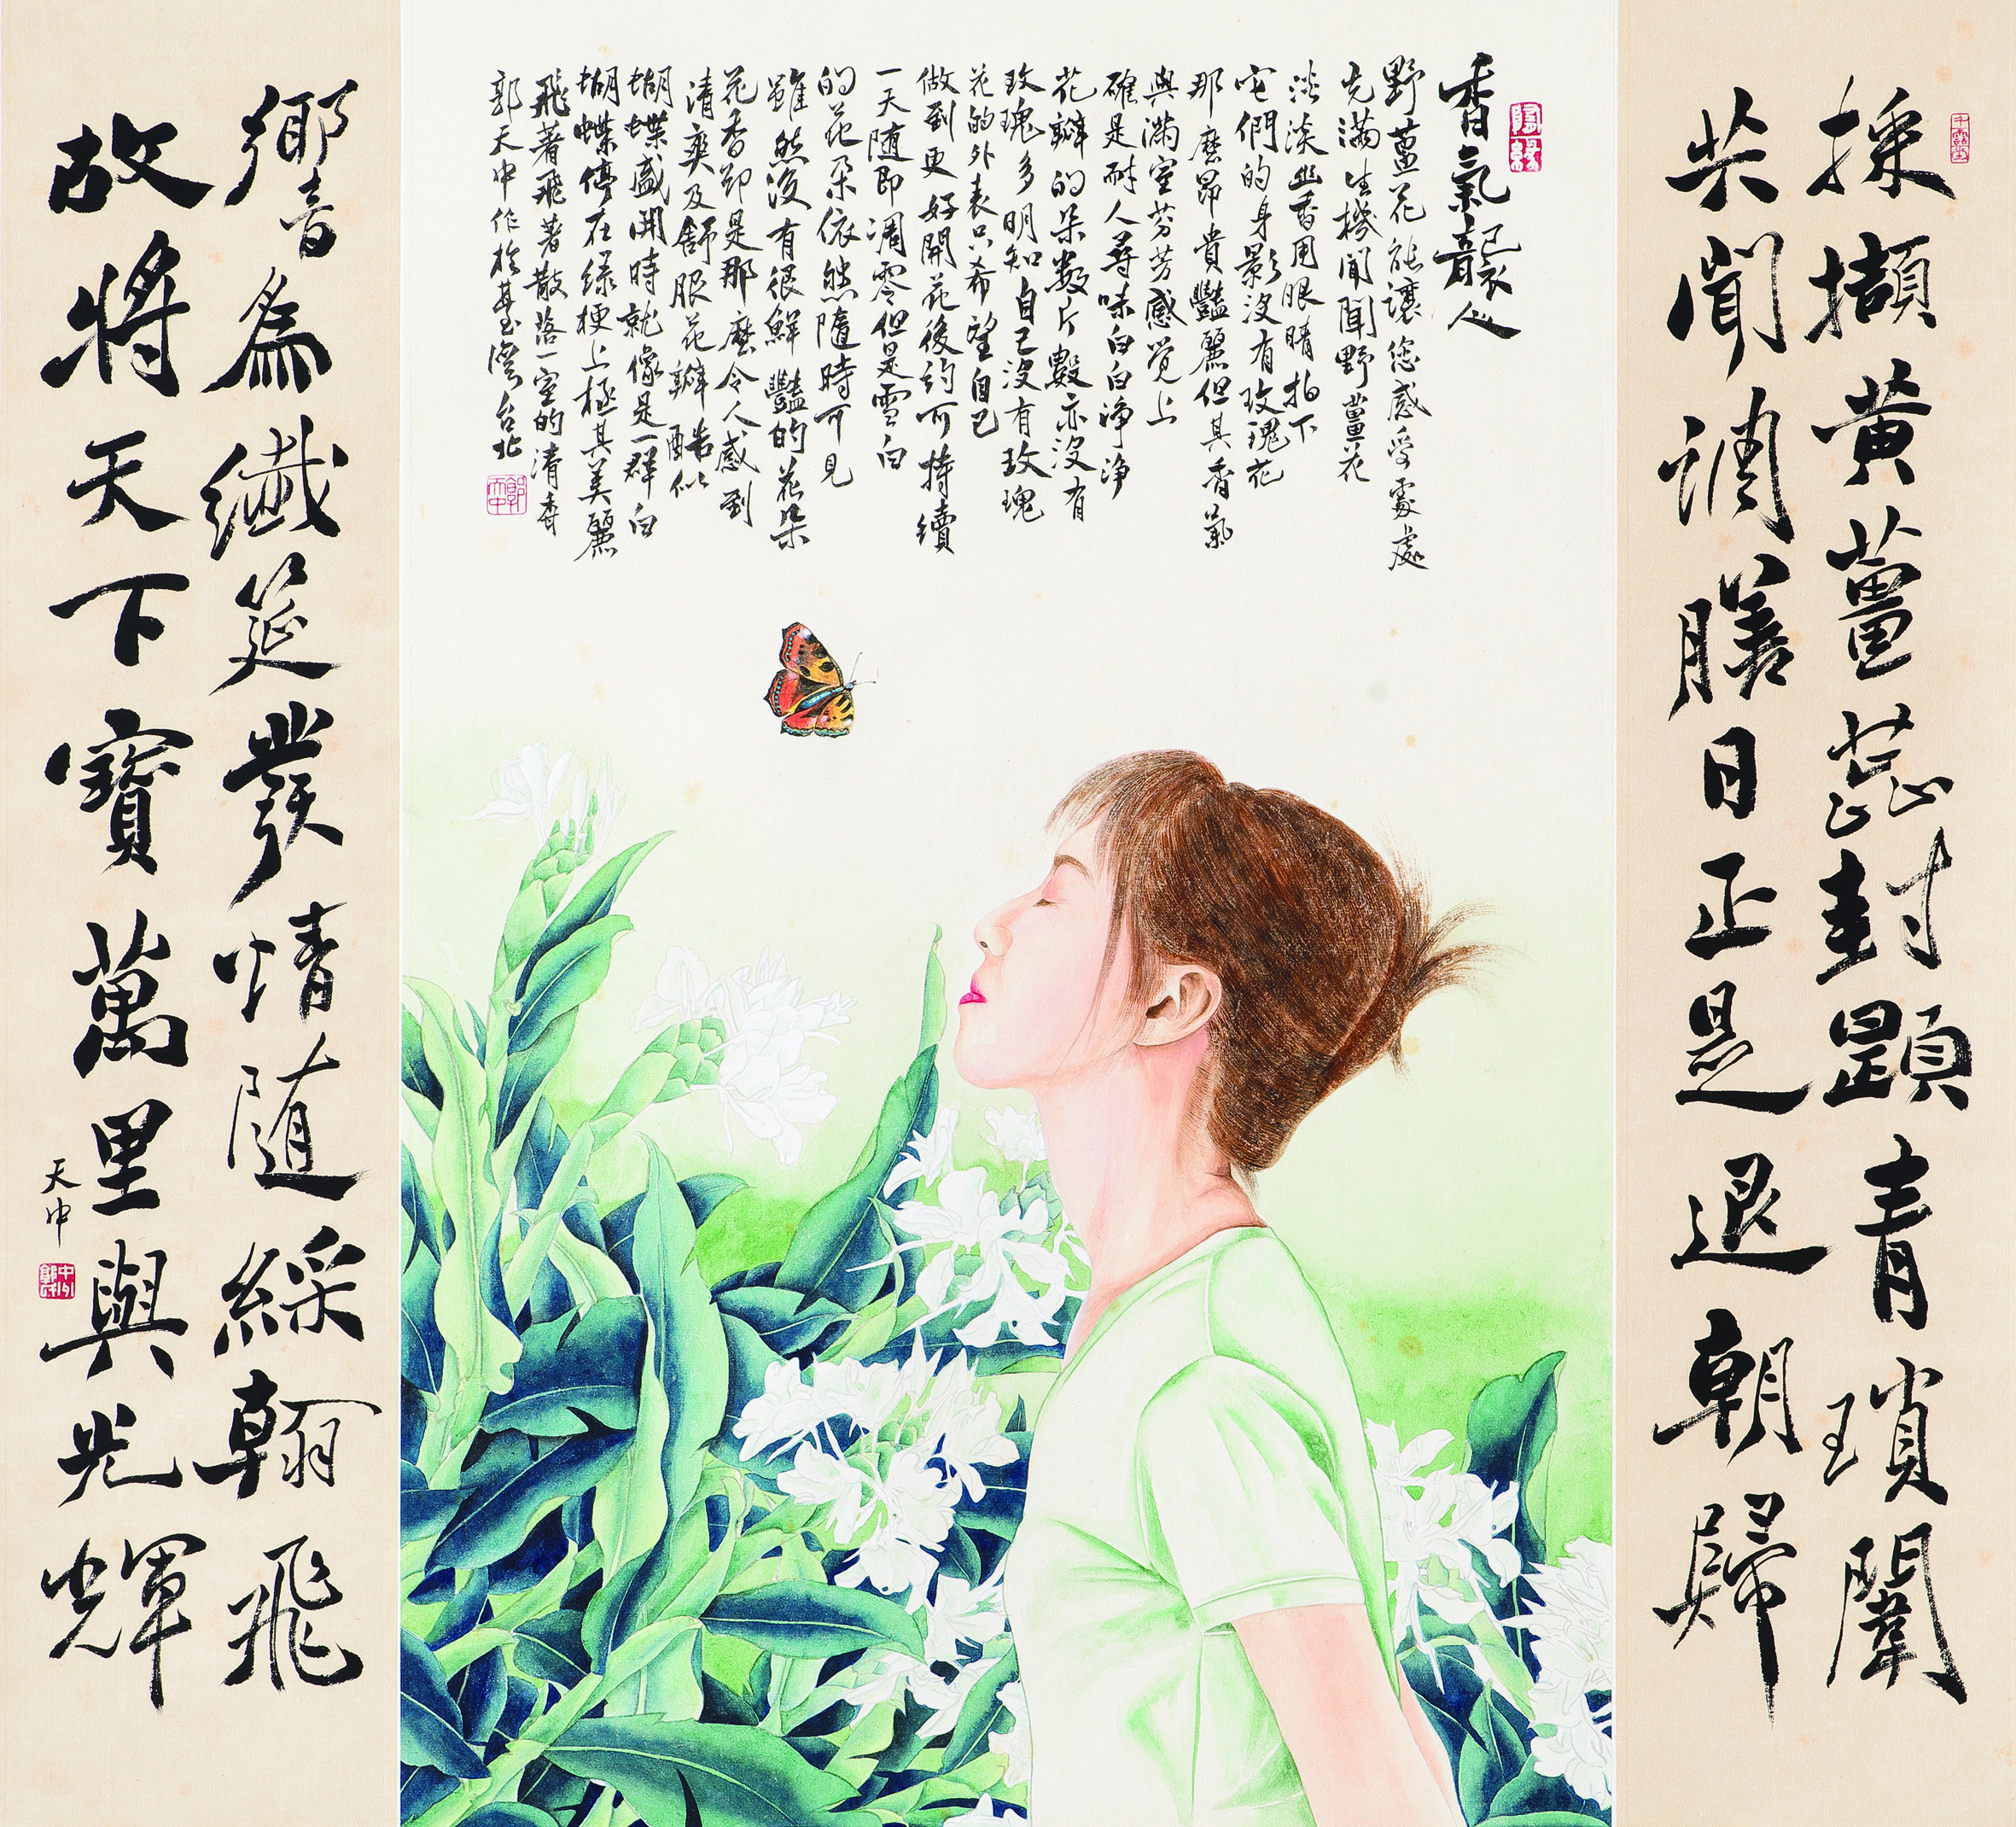 採擷黃薑蕊封題青瑣闈
共聞調膳日正是退朝歸
香氣襲人
野薑花能讓您感受處處
充滿生機聞聞野薑花
淡淡幽香用眼睛拍下
它們的身影沒有玫瑰花
那麼昂貴豔麗但其香氣
與滿室芬芳感觉上
確是耐人尋味白白淨淨
花瓣的朵数片數亦沒有
玫瑰多明知自己沒有玫瑰
花的外表只希望自己
做到更好開花後約可持續
一天随即凋零但是雪白
的花朵依然隨時可見
雖然沒有很鮮豔的花朵
花香卻是那麼令人感到
清爽及舒服花瓣酷似
蝴蝶盛開時就像是一群白
蝴蝶停在綠梗上極其美麗
飛著飛著散落一室的清香
郭天中作於臺灣台北
郭天中
響為纖筵發情随綵翰飛
故將天下寶萬里與光輝
天中